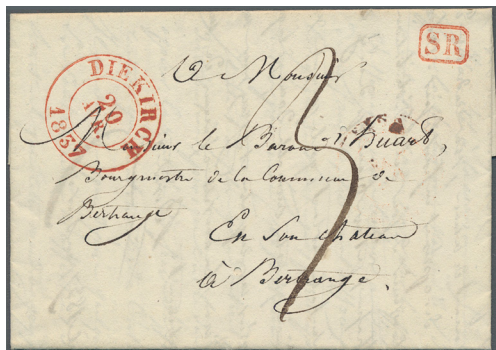 SR
DIEKIRCH
20
1837
A Monsieur
Monsieur le Baron d'Huart,
Bourgmestre de la Commune de
Bertrange
En son chateau
à Bertrange.
3